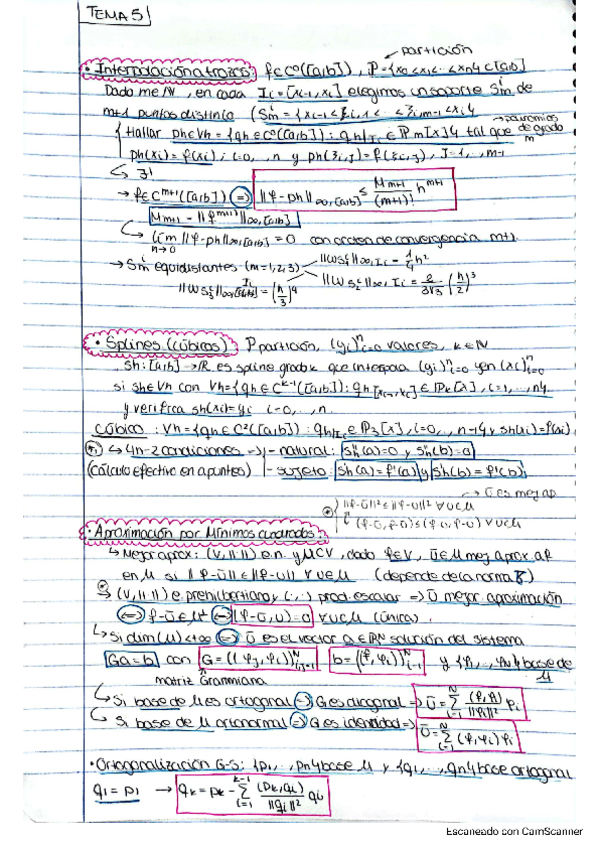 TEMA 5
partición
• Interpolación a trozos: f∈C⁰([a,b]), P={x₀<x₁<...<xₙ}⊂[a,b]
Dado m∈ℕ, en cada Iᵢ=[xᵢ₋₁,xᵢ] elegimos un soporte Sⁱₘ de
m+1 puntos distintos (Sⁱₘ={xᵢ₋₁<ξᵢ,₁<...<ξᵢ,ₘ₋₁<xᵢ}
polinomios de grado m
Hallar ph∈Vh={qh∈C⁰([a,b]): qh|Iᵢ∈ℙm[x]} tal que
ph(xᵢ)=f(xᵢ), i=0,..,n y ph(ξᵢ,ⱼ)=f(ξᵢ,ⱼ), j=1,..,m-1
↳ ∃!
→ f∈Cᵐ⁺¹([a,b]) ⇒ ||f-ph||∞,[a,b] ≤ Mₘ₊₁/(m+1)! hᵐ⁺¹
Mₘ₊₁=||f⁽ᵐ⁺¹⁾||∞,[a,b]
↳ lim ||f-ph||∞,[a,b]=0 con orden de convergencia m+1
h→0
→ Sⁱₘ equidistantes (m=1,2,3) ||ωS₁ⁱ||∞,Iᵢ=1/4 h²
||ωS₂ⁱ||∞,Iᵢ=2/(3√3) (h/2)³
||ωS₃ⁱ||∞,Iᵢ=(h/3)⁴
• Splines (cúbicos): P partición, (yᵢ)ⁿᵢ₌₀ valores, k∈ℕ
sh:[a,b]→ℝ es spline grado k que interpola (yᵢ)ⁿᵢ₌₀ en (xᵢ)ⁿᵢ₌₀
si sh∈Vh con Vh={qh∈Cᵏ⁻¹([a,b]): qh|[xᵢ₋₁,xᵢ]∈ℙk[x], i=1,..,n}
y verifica sh(xᵢ)=yᵢ i=0,..,n
Cúbico: Vh={qh∈C²([a,b]): qh|Iᵢ∈ℙ₃[x], i=0,..,n-1} y sh(xᵢ)=f(xᵢ)
↳ 4n-2 condiciones → - natural: s''h(a)=0 y s''h(b)=0
(cálculo efectivo en apuntes) - sujeto: s'h(a)=f'(a) y s'h(b)=f'(b)
→ ū es mej ap
||f-ū||²≤||f-u||² ∀u∈U
(f-ū,f-ū)≤(f-u,f-u) ∀u∈U
• Aproximación por Mínimos cuadrados:
↳ Mejor aprox: (V,||·||) e.n. y U⊂V, dado f∈V, ū∈U mej aprox a f
en U si ||f-ū||≤||f-u|| ∀u∈U (depende de la norma)
↳ (V,||·||) e. prehilbertiano y (·,·) prod. escalar ⇒ ū mejor aproximación
⇔ f-ū∈U⊥ ⇔ (f-ū,u)=0 ∀u∈U (única)
↳ Si dim(U)<+∞ ⇔ ū es el vector a∈ℝᴺ solución del sistema
Ga=b con G=((φⱼ,φᵢ))ᴺᵢ,ⱼ₌₁ b=((f,φᵢ))ᴺᵢ₌₁ y {φ₁,..,φN} base de U
matriz Grammiana
↳ Si base de U es ortogonal ⇒ G es diagonal ⇒ ū=Σᴺᵢ₌₁ (f,φᵢ)/||φᵢ||² φᵢ
↳ Si base de U ortonormal ⇒ G es identidad ⇒ ū=Σᴺᵢ₌₁ (f,φᵢ)φᵢ
• Ortogonalización G-S: {p₁,..,pn} base U y {q₁,..,qn} base ortogonal
q₁=p₁ → qk=pk-Σᵏ⁻¹ᵢ₌₁ (pk,qᵢ)/||qᵢ||² qᵢ
Escaneado con CamScanner